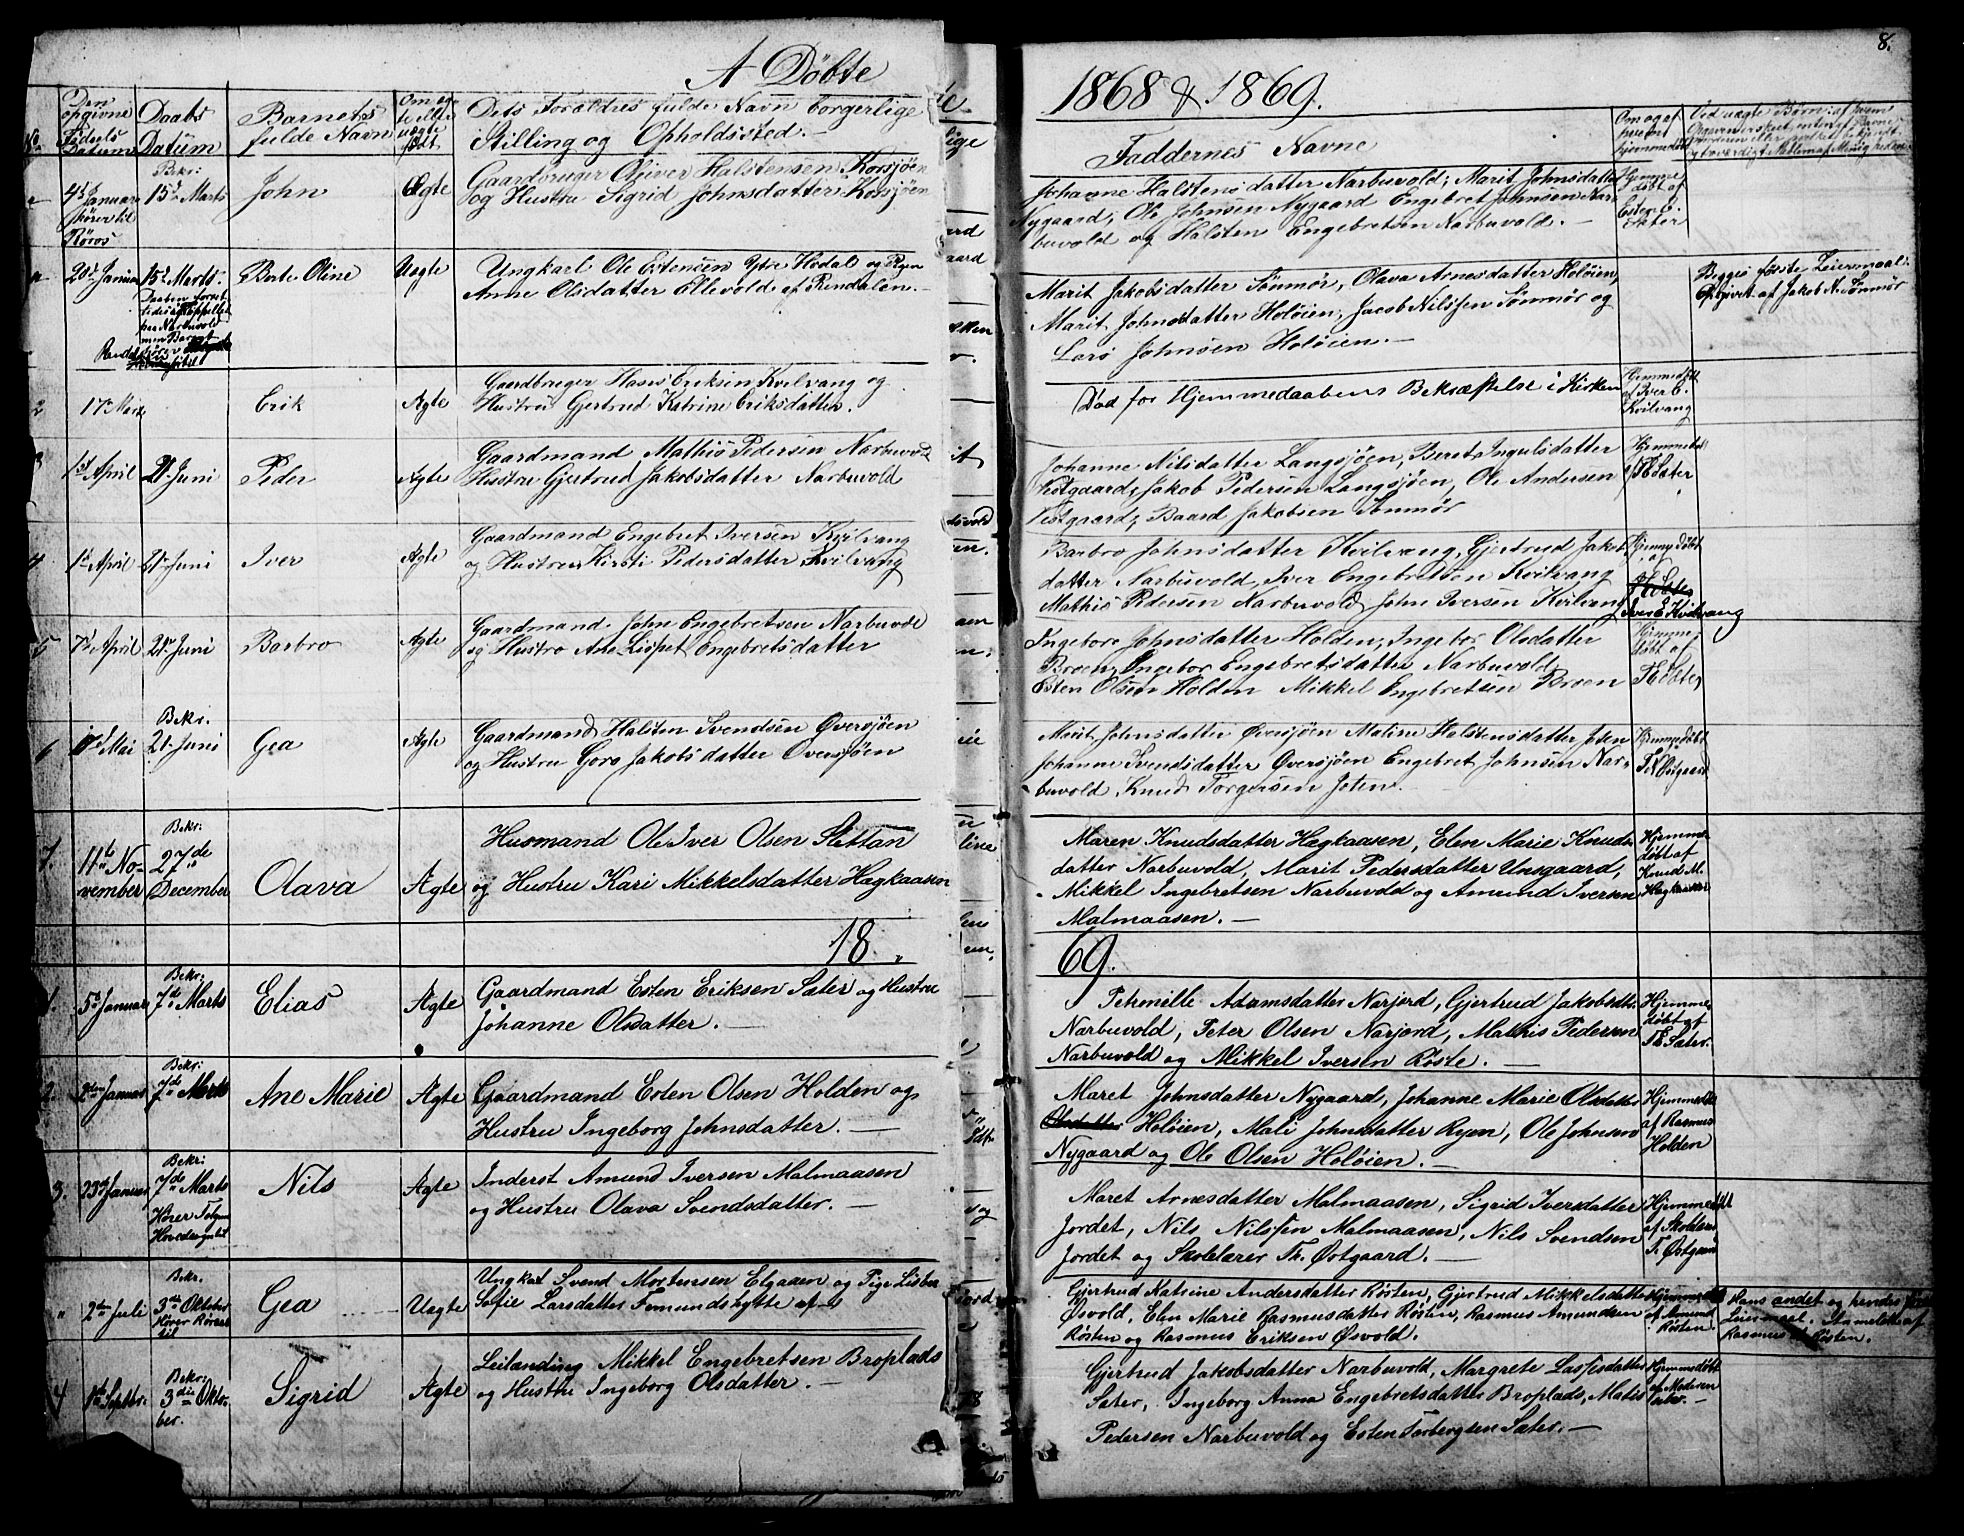 A Døbte
1868 & 1869.
8.
No
Den opgivne Fødsels Datum
Daabs Datum
Barnets fulde Navn
Om ægte eller uægte født
Dets Foraldres fulde Navn borgerlige
Stilling og Opholdssted. –
Faddernes Navne
Om og af hvem hjemmedøbt
4de Januar hører til Röros
Bekr: 15de Marts
John
Ægte
Gaardbruger Ojiver Halstensen Korsjøen
og Hustru Sigrid Johnsdatter Korsjøen
Johanne Halstensdatter Narbuvold; Marit Johnsdatter
Nygaard; Ole Johnsen Nygaard Engebret Johnsen Nar-
buvold og Halsten Engebretsen Narbuvold. –
Hjemmedøbt af Esten E. Sater
20de Januar
15de Marts.
Berte Oline
Uagte
Ungkarl Ole Estensen Ytre Hodal og Pigen
Anne Olsdatter Ellevold af Rendalen. –
Marit Jakobsdatter Sönmör, Olava Arnesdatter Holöien,
Marit Johnsdatter Holöien, Jacob Nilssen Sönmör og
Lars Johnsen Holöien. –
Begges første Leiermaal.
Opgivet af Jakob N. Sönmör
2
17de Marts
Erik
Agte
Gaardbruger Hans Eriksen Kvilvang og
Hustru Gjertrud Katrine Eriksdatter.
Död før Hjemmedaabens Bekræftelse i Kirken
Hjemmedöbt af Iver E. Kvilvang
3
1st April
21de Juni
Peder
Agte
Gaardmand Mathis Pedersen Narbuvold
Hustru Gjertrud Jakobsdatter Narbuvold
Johanne Nilsdatter Langsjöen, Beret Ingulsdatter
Vestgaard, Jakob Pedersen Langsjöen, Ole Andersen
Vestgaard, Baard Jakobsen Sönmör
4
1st April
21de Juni
Iver
Agte
Gaardmand Engebret Iversen Kvilvang
og Hustru Kirsti Pedersdatter Kvilvang
Barbro Johnsdatter Kvilvang, Gjertrud Jakobs
datter Narbuvold, Iver Engebretsen Kvilvang
Mathis Pedersen Narbuvold, John Iversen Kvilvang
Hjemmedöbt af
Iver E Kvilvang
5
7de April
21de Juni
Barbro
Agte
Gaardmand John Engebretsen Narbuvold
og Hustro Ane Lispet Engebretsdatter
Ingebore Johnsdatter Holden, Ingebor Olsdatter
Broen, Ingebor Engebretsdatter Narbuvold,
Esten Olsen Holden Mikkel Engebretsen Broen
Hjemmedöbt af
6
Mai
Bekr. 21de Juni
Gea
Agte
Gaardmand Halsten Svendsen Øversjöen
og Hustru Goro Jakobsdatter Oversjöen
Marit Johnsdatter Øversjöen Maline Halstensdatter Joten
Johanne Svendsdatter Øversjöen Engebret Johnsen Nar-
buvold, Knud Torgersen Joten.
Hjemmedöbt
7.
11te November
Bekr: 27de December
Olava
Agte
Husmand Ole Iver Olsen Slettan
og Hustru Kari Mikkelsdatter Hagkaasen
Maren Knudsdatter Hagkaasen, Elen Marie Knuds-
datter Narbuvold, Marit Pedersdatter Unsgaard,
Mikkel Ingebretsen Narbuvold og Amund Iversen
Malmaasen. –
Hjemmedøbt af Knud M. Hagkaasen
18 69.
1.
5te Januar
Bekr: 7de Marts
Elias
Agte
Gaardmand Esten Eriksen Sater og Hustru
Johanne Olsdatter. –
Petrnille Adamsdatter Narjord, Gjertrud Jakobsdt.
Narbuvold, Peter Olsen Narjord, Mathis Pedersen
Narbuvold og Mikkel Iversen Røste. –
Hjemmedøbt af TE Sater.
2.
2den Januar
Bekr: 7de Marts
Ane Marie
Agte
Gaardmand Esten Olsen Holden og
Hustru Ingeborg Johnsdatter. –
Maret Johnsdatter Nygaard, Johanne Marie Olsdatter
Olsdatter Holøien, Mali Johnsdatter Ryen, Ole Johnsen
Nygaard og Ole Olsen Holøien. –
Hjemmedøbt af Rasmus Holden
3.
23de Januar
Bekr: 7de Marts
Nils
Agte
Inderst Amund Iversen Malmaasen
og Hustru Olava Svendsdatter. –
Maret Arnesdatter Malmaasen, Sigrid Iversdatter
Jordet, Nils Nilssen Malmaasen, Nils Svendsen
Jordet og Skolelærer Th. Østgaard. –
Hjemmedøbt af Skolelærer T. Østgaard
"
2den Juli
Bekr. 3die Oktober Hører Røros til
Gea
Uagte
Ungkal Svend Mortensen Elgaaen og Pige Lisbe
Sofie Larsdatter Femundshytte
Gjertrud Katrine Andersdatter Røsten, Gjertrud Mikkelsdatter
Øsvold, Elen Marie Rasmusdatter Røsten, Rasmus Amundsen
Røsten og Rasmus Eriksen Øsvold.
Hjemmedøbt af Amund Røsten.
Hans andet og hendes
Leiermaal. Anmeldt af
Rasmus Røsten.
4
1ste Septbr.
Bekr: 3die Oktober.
Sigrid
Agte
Leilanding Mikkel Engebretsen Broplads
og Hustru Ingeborg Olsdatter. –
Gjertrud Jakobsdatter Narbuvold, Margrete Lassesdatter
Sater, Ingeborg Anna Engebretsdatter Broplads, Matis
Pedersen Narbuvold og Esten Torbergsen Sater. –
Hjemmedøbt af Moderen